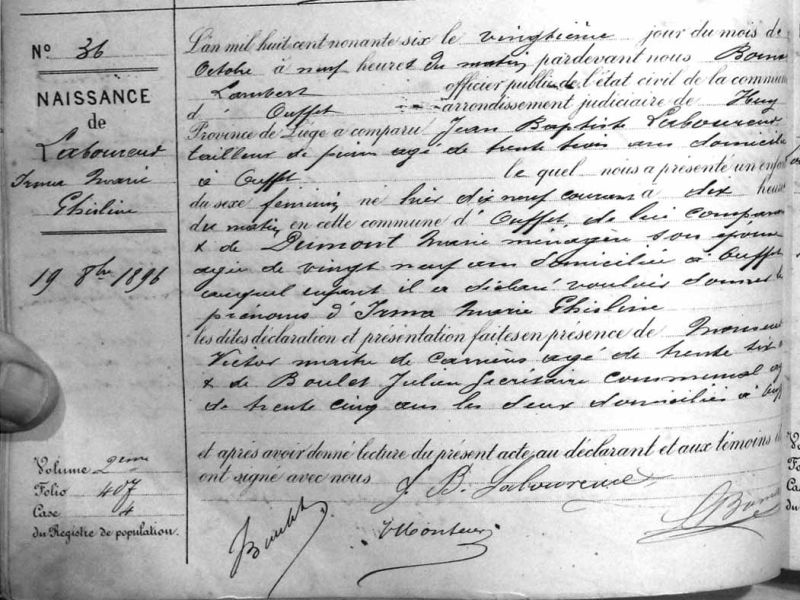 N° 36
NAISSANCE
de
Laboureur
Irma Marie
Ghisline
19 8bre 1896
Volume 2eme
Folio 407
Case 4
du Registre de population.
L'an mil huit cent nonante six le vingtième jour du mois de
Octobre à neuf heures du matin pardevant nous
Lambert officier public de l'état civil de la commun
d' Ouffet arrondissement judiciaire de Huy
Province de Liége a comparu Jean Baptiste Laboureur
tailleur de pierres agé de trente trois ans domicilié
à Ouffet le quel nous a présenté un enfan
du sexe feminin né hier dix neuf courant à dix heures
du matin en cette commune d' Ouffet, de lui comparan
& de Dumont Marie ménagère son épouse
agée de vingt neuf ans domiciliée à Ouffet
auquel enfant il a déclaré vouloir donner les
prénoms d' Irma Marie Ghisline
les dites déclaration et présentation faites en présence de
Victor maitre de carrières agé de trente six
& de Boulet Julien Secrétaire communal
de trente cinq ans les deux domiciliés à Ouff
et après avoir donné lecture du présent acte au déclarant et aux témoins
ont signé avec nous J. B. Laboureur
JBoulet
VMonseur